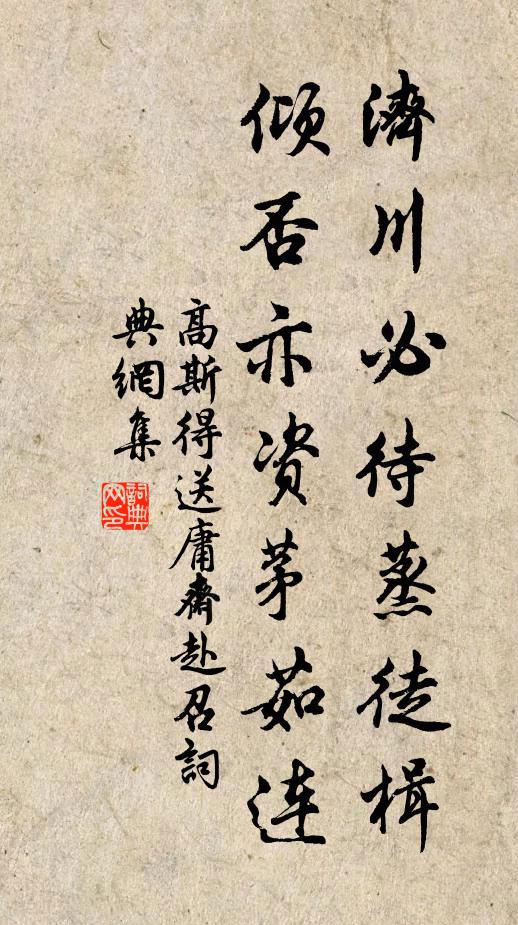 濟川必待蒸徒楫
傾否亦資茅茹連
高斯得送庸齋赴召詞
典網集
詞典
网印